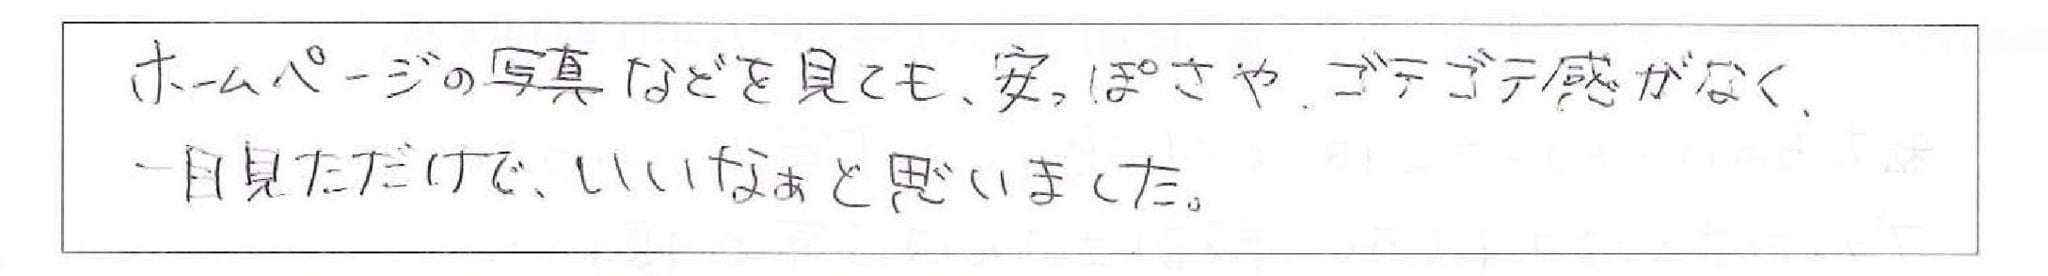 ホームページの写真などを見ても、安っぽさや、ゴテゴテ感がなく、
一目見ただけで、いいなぁと思いました。